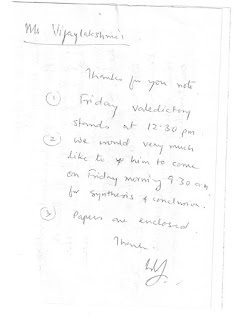 Ms Vijaylakshmi
Thanks for you note.
① Friday valedictory
stands at 12.30 pm.
② we would very much
like to him to come
on Friday morning 9.30 a.m.
for synthesis & conclusion.
③ Papers are enclosed.
Thanks.